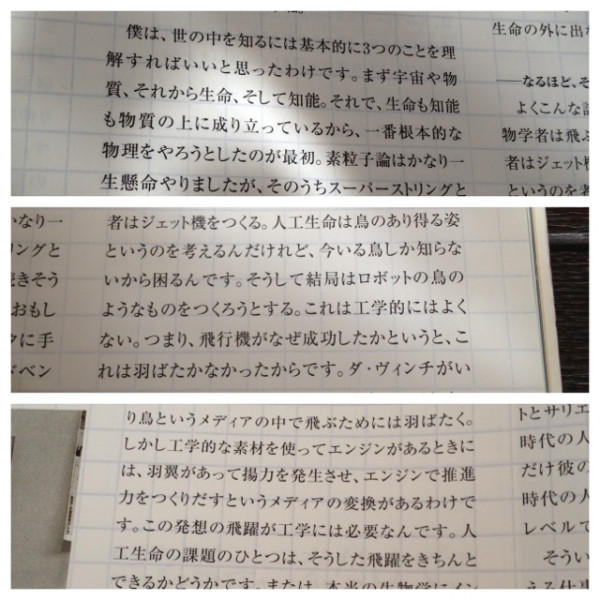 僕は、世の中を知るには基本的に3つのことを理
解すればいいと思ったわけです。まず宇宙や物
質、それから生命、そして知能。それで、生命も知能
も物質の上に成り立っているから、一番根本的な
物理をやろうとしたのが最初。素粒子論はかなり一
生懸命やりましたが、そのうちスーパーストリングと
生命の外に出
──なるほど、そ
よくこんな
物学者は飛
者はジェット
というのを
かなり一
リングと
きそう
おもし
に手
ベン
者はジェット機をつくる。人工生命は鳥のあり得る姿
というのを考えるんだけれど、今いる鳥しか知らな
いから困るんです。そうして結局はロボットの鳥の
ようなものをつくろうとする。これは工学的にはよく
ない。つまり、飛行機がなぜ成功したかというと、こ
れは羽ばたかなかったからです。ダ・ヴィンチがい
り鳥というメディアの中で飛ぶためには羽ばたく。
しかし工学的な素材を使ってエンジンがあるときに
は、羽翼があって揚力を発生させ、エンジンで推進
力をつくりだすというメディアの変換があるわけで
す。この発想の飛躍が工学には必要なんです。人
工生命の課題のひとつは、そうした飛躍をきちんと
できるかどうかです。または、本当の生物学にイン
トとサリエ
時代の人
だけ彼の
時代の人
レベルで
そうい
える仕事